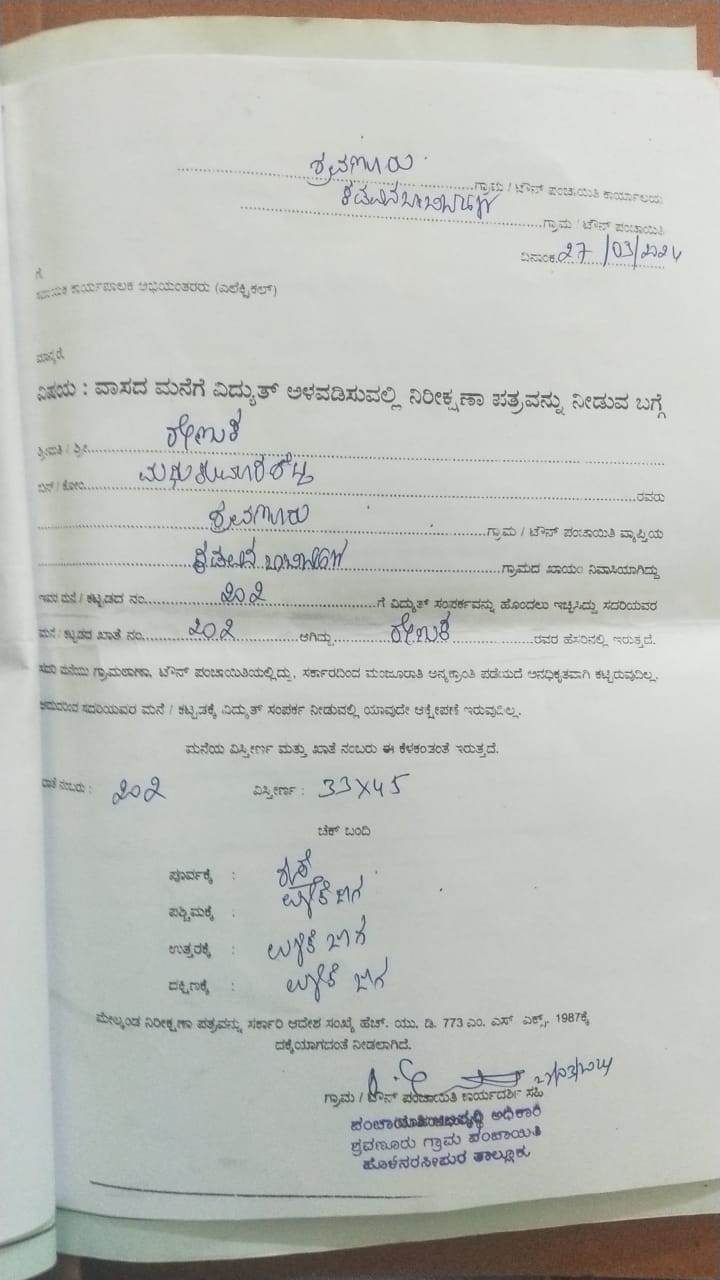 ಶ್ರವಣೂರು
ಗ್ರಾಮ / ಟೌನ್ ಪಂಚಾಯಿತಿ ಕಾರ್ಯಾಲಯ
ಗ್ರಾಮ / ಟೌನ್ ಪಂಚಾಯಿತಿ
ದಿನಾಂಕ 27/03/2024
ಗೆ
ಸಹಾಯಕ ಕಾರ್ಯಪಾಲಕ ಅಭಿಯಂತರರು (ಎಲೆಕ್ಟ್ರಿಕಲ್)
ಮಾನ್ಯರೆ,
ವಿಷಯ : ವಾಸದ ಮನೆಗೆ ವಿದ್ಯುತ್ ಅಳವಡಿಸುವಲ್ಲಿ ನಿರೀಕ್ಷಣಾ ಪತ್ರವನ್ನು ನೀಡುವ ಬಗ್ಗೆ
ಶ್ರೀಮತಿ / ಶ್ರೀ ರೇಣುಕ
ಬಿನ್ / ಕೋಂ ರವರು
ಶ್ರವಣೂರು ಗ್ರಾಮ / ಟೌನ್ ಪಂಚಾಯಿತಿ ವ್ಯಾಪ್ತಿಯ
ಗ್ರಾಮದ ಖಾಯಂ ನಿವಾಸಿಯಾಗಿದ್ದು
ಇವರ ಮನೆ / ಕಟ್ಟಡದ ನಂ. ೨೦೨ ಗೆ ವಿದ್ಯುತ್ ಸಂಪರ್ಕವನ್ನು ಹೊಂದಲು ಇಚ್ಛಿಸಿದ್ದು ಸದರಿಯವರ
ಮನೆ / ಕಟ್ಟಡದ ಖಾತೆ ನಂ. ೨೦೨ ಆಗಿದ್ದು ರೇಣುಕ ರವರ ಹೆಸರಿನಲ್ಲಿ ಇರುತ್ತದೆ.
ಸದರಿ ಮನೆಯು ಗ್ರಾಮಠಾಣಾ, ಟೌನ್ ಪಂಚಾಯಿತಿಯಲ್ಲಿದ್ದು, ಸರ್ಕಾರದಿಂದ ಮಂಜೂರಾತಿ ಅನ್ಯಕ್ರಾಂತಿ ಪಡೆಯದೆ ಅನಧಿಕೃತವಾಗಿ ಕಟ್ಟಿರುವುದಿಲ್ಲ.
ಆದುದರಿಂದ ಸದರಿಯವರ ಮನೆ / ಕಟ್ಟಡಕ್ಕೆ ವಿದ್ಯುತ್ ಸಂಪರ್ಕ ನೀಡುವಲ್ಲಿ ಯಾವುದೇ ಆಕ್ಷೇಪಣೆ ಇರುವುದಿಲ್ಲ.
ಮನೆಯ ವಿಸ್ತೀರ್ಣ ಮತ್ತು ಖಾತೆ ನಂಬರು ಈ ಕೆಳಕಂಡಂತೆ ಇರುತ್ತದೆ.
ಖಾತೆ ನಂಬರು : ೨೦೨ ವಿಸ್ತೀರ್ಣ : 33X45
ಚೆಕ್ ಬಂದಿ
ಪೂರ್ವಕ್ಕೆ : ರಸ್ತೆ
ಪಶ್ಚಿಮಕ್ಕೆ : ಉಳಿಕೆ ಜಾಗ
ಉತ್ತರಕ್ಕೆ : ಉಳಿಕೆ ಜಾಗ
ದಕ್ಷಿಣಕ್ಕೆ : ಉಳಿಕೆ ಜಾಗ
ಮೇಲ್ಕಂಡ ನಿರೀಕ್ಷಣಾ ಪತ್ರವನ್ನು ಸರ್ಕಾರಿ ಆದೇಶ ಸಂಖ್ಯೆ ಹೆಚ್. ಯು. ಡಿ. 773 ಎಂ. ಎಸ್ ಎಕ್ಸ್, 1987ಕ್ಕೆ
ದಕ್ಕೆಯಾಗದಂತೆ ನೀಡಲಾಗಿದೆ.
27/03/2024
ಗ್ರಾಮ / ಟೌನ್ ಪಂಚಾಯಿತಿ ಕಾರ್ಯದರ್ಶಿ ಸಹಿ
ಪಂಚಾಯಿತಿ ಅಭಿವೃದ್ಧಿ ಅಧಿಕಾರಿ
ಶ್ರವಣೂರು ಗ್ರಾಮ ಪಂಚಾಯಿತಿ
ಹೊಳೆನರಸೀಪುರ ತಾಲ್ಲೂಕು